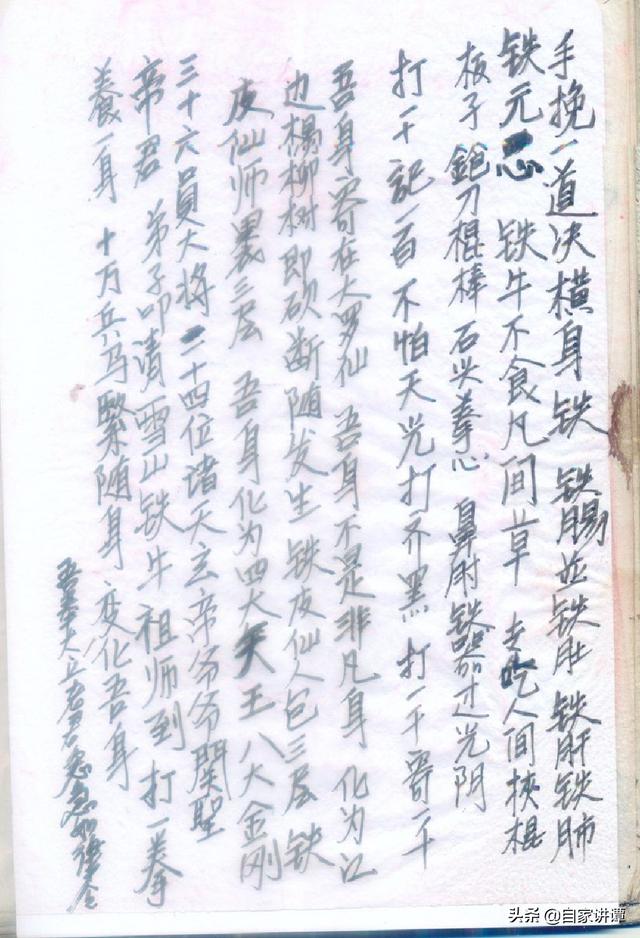 手挽一道决横身铁 铁肠并铁肚铁肝铁肺
铁元 铁牛不食凡间草 专吃人间挟棍
板子鉋刀棍棒 石头拳心 鼻肘铁器过光阴
打一千記一百不怕天光打齐黑 打一千寄一千
吾身寄在大罗仙 吾身不是非凡身 化为江
边楊柳树即砍断随发生 铁皮仙人包三层 铁
皮仙师裹三层 吾身化为四大天王 八大金刚
三十六員大将 二十四位诸天玄帝爷爷関聖
帝君 弟子叩请雪山铁牛祖师到 打一拳
養一身 十万兵马緊随身 变化吾身
吾奉太上老君急急如律令
头条 @自家讲蕈